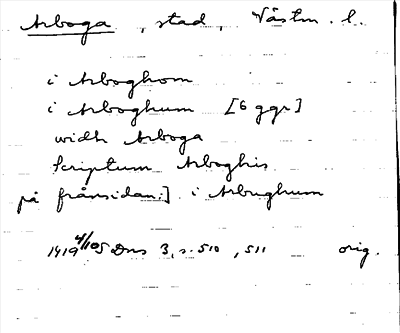 Arboga, stad, Västm. l.
i Arboghom
i Arboghum [6 ggr]
widh Arboga
Scriptum Arboghis
på frånsidan:] i Arbughum
1419 4/10 SDns 3, s. 510, 511 orig.